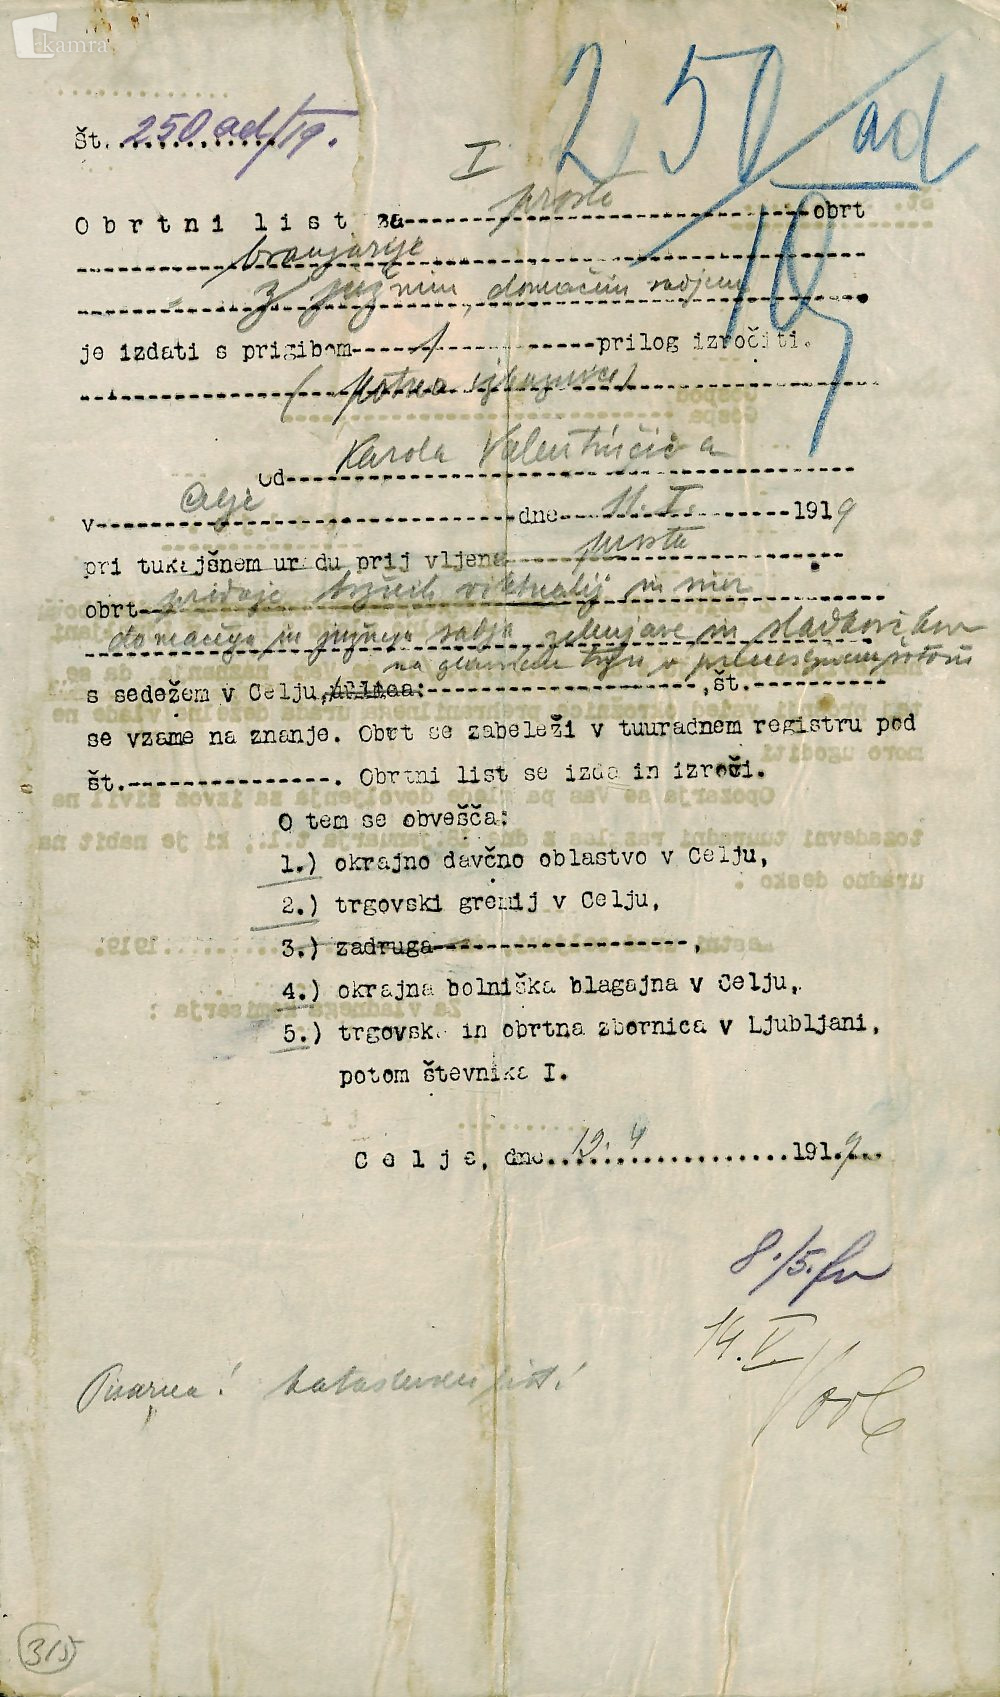 kamra
250 ad/19
Št. 250 ad/19.
I
Obrtni list za proste obrt
branjarije
z južnim, domačim sadjem
je izdati s prigibom 1 prilog izročiti.
Karola Valentinčiča
od
v Celje dne 11. I. 1919
pri tukajšnem uradu prijavljena prosta
obrt prodaje tržnih viktualij in sicer
domačega in južnega sadja zelenjave in sladkorčkov
na glavnem trgu v
s sedežem v Celju, ulica: , št.
se vzame na znanje. Obrt se zabeleži v tuuradnem registru pod
št. . Obrtni list se izda in izroči.
O tem se obvešča:
1.) okrajno davčno oblastvo v Celju,
2.) trgovski gremij v Celju,
3.) zadruga ,
4.) okrajna bolniška blagajna v Celju,
5.) trgovska in obrtna zbornica v Ljubljani,
potom števnika I.
Celje, dne 12. 4 1919
8./5.
14. V.
Pisarna!
315